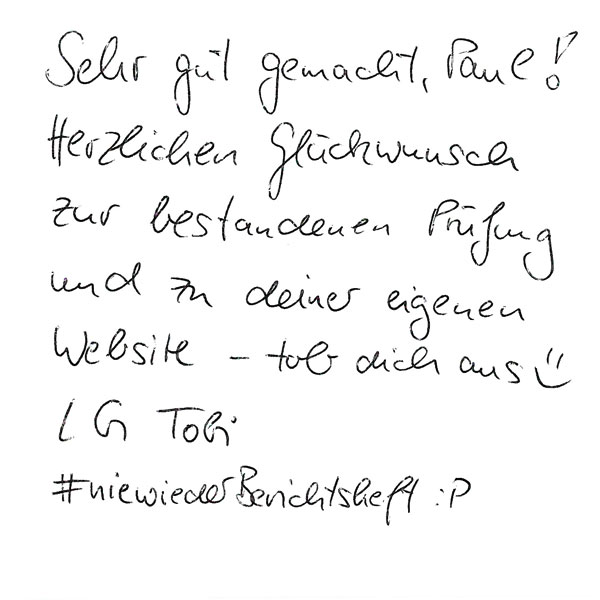 Sehr gut gemacht, Paul!
Herzlichen Glückwunsch
zur bestandenen Prüfung
und zu deiner eigenen
Website – tob dich aus ü
LG Tobi
#niewiederBerichtsheft :P